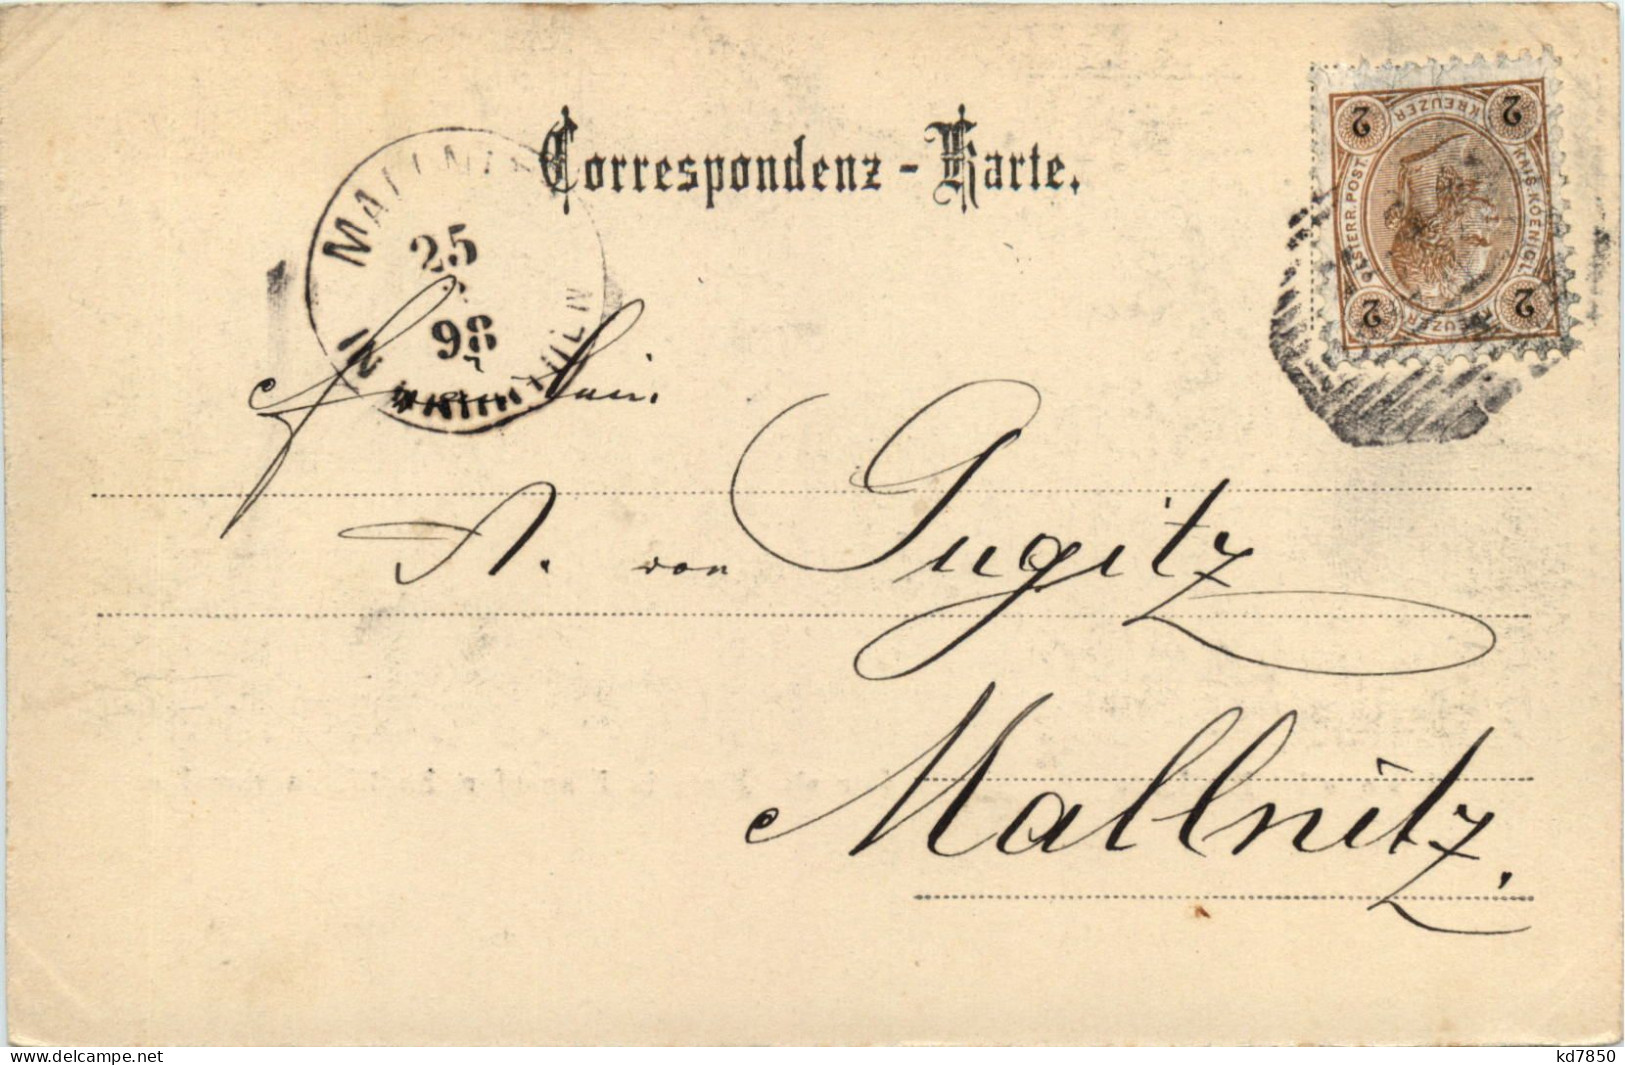 Correspondenz - Karte.
2 KREUZER 2
OESTERR. POST KAIS. KOENIGL.
2 KREUZER 2
MALLNITZ
25
98
IN KÄRNTHEN
Fräulein.
A. von Gugitz
Mallnitz.
www.delcampe.net
kd7850